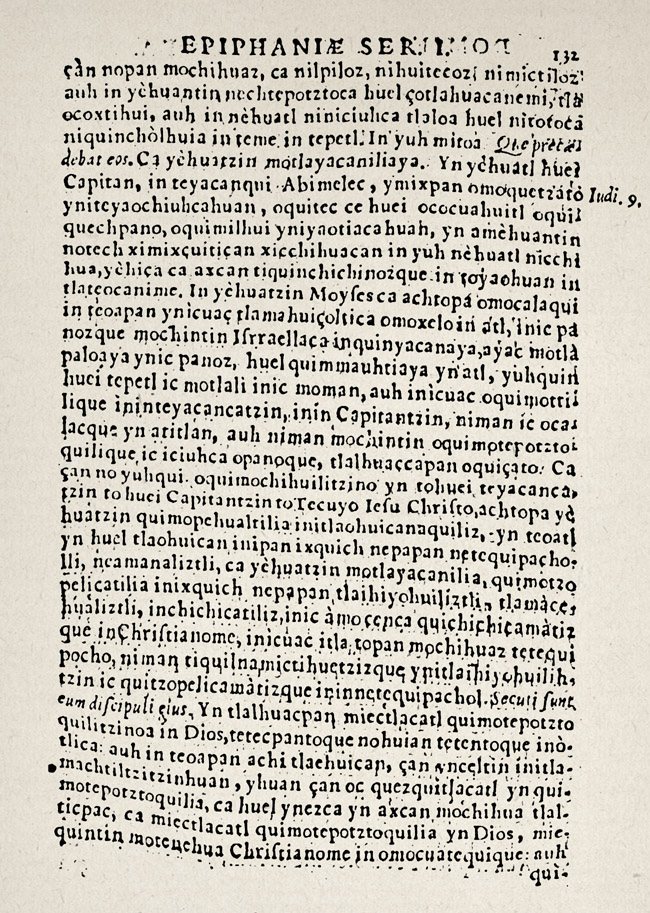 EPIPHANIÆ SERMO
132
çàn nopan mochihuaz, ca nilpiloz, nihuitecoz, nimictiloz:
auh in yèhuantin nechtepotztoca huel çotlahuacanemi, tlà
ocoxtihui, auh in nèhuatl niniciuhca tlaloa huel nitotoca
niquinchòlhuia in teme in tepetl. In yuh mitoa Que præce
debat eos. Ca yèhuatzin motlayacaniliaya. Yn yèhuatl huel
Capitan, in teyacanqui Abimelec, ymixpan omoquetzatò
Iudi. 9.
yniteyaochiuhcahuan, oquitec ce huei ococuahuitl oquil
quechpano, oquimilhui yniyaotiacahuah, yn amèhuantin
notech ximixçuitiçan xicchihuacan in yuh nèhuatl nicchi
hua, yèhiça ca axcan tiquinchichinozque in toyaohuan in
tlateocanime. In yèhuatzin Moyses ca achtopa omocalaqui
in teoapan ynicuaç tlamahuiçoltica omoxelo in atl, inic pa
nozque mochintin Isrraellaca inquinyacanaya, ayac motlà
paloaya ynic panoz, huel quimmauhtiaya yn atl, yuhquin
huei tepetl ic motlali inic moman, auh inicuac oquimottil
lique ininteyacancatzin, inin Capitantzin, niman ic ocal
lacque yn atitlan, auh niman mochintin oquimotepotztol
quilique ic iciuhca opanoque, tlalhuaccapan oquiçato. Ca
çan no yuhqui oquimochihuilitzino yn tohuei teyacanca,
tzin to huei Capitantzin to Tecuyo Iesu Christo, achtopa yè
huatzin quimopehualtilia initlaohuicanaquiliz, yn teoatl
yn huel tlaohuican inipan ixquich nepapan netequipacho,
lli, neamanaliztli, ca yèhuatzin motlayacanilia, quimotzo
pelicatilia inixquich nepapan tlaihiyohuiliztli, tlamàcez
hualiztli, inchichicatiliz, inic àmo cenca quichichicamàtiz
què in Christianome, inicuàc itla topan mochihuaz tetequi
pocho, niman tiquilnamictihuetzizque ynitlaihiyohuilih,
tzin ic quitzopelicamàtizque ininnetequipachol. Secuti sunt
eum discipuli eius. Yn tlalhuacpan miectlacatl quimotepotzto
quilitzinoa in Dios, tetecpantoque nohuian tetentoque inò-
tlica: auh in teoapan achi tlaehuican, çan ynceltin initla-
machtiltzitzinhuan, yhuan çan oc quezquitlacatl yn qui-
motepotztoquilia, ca huel ynezca yn axcan mochihua tlal-
ticpac, ca miectlacatl quimotepotztoquilia yn Dios, mie-
quintin motenehua Christianome in omocuatequique: auh
qui-